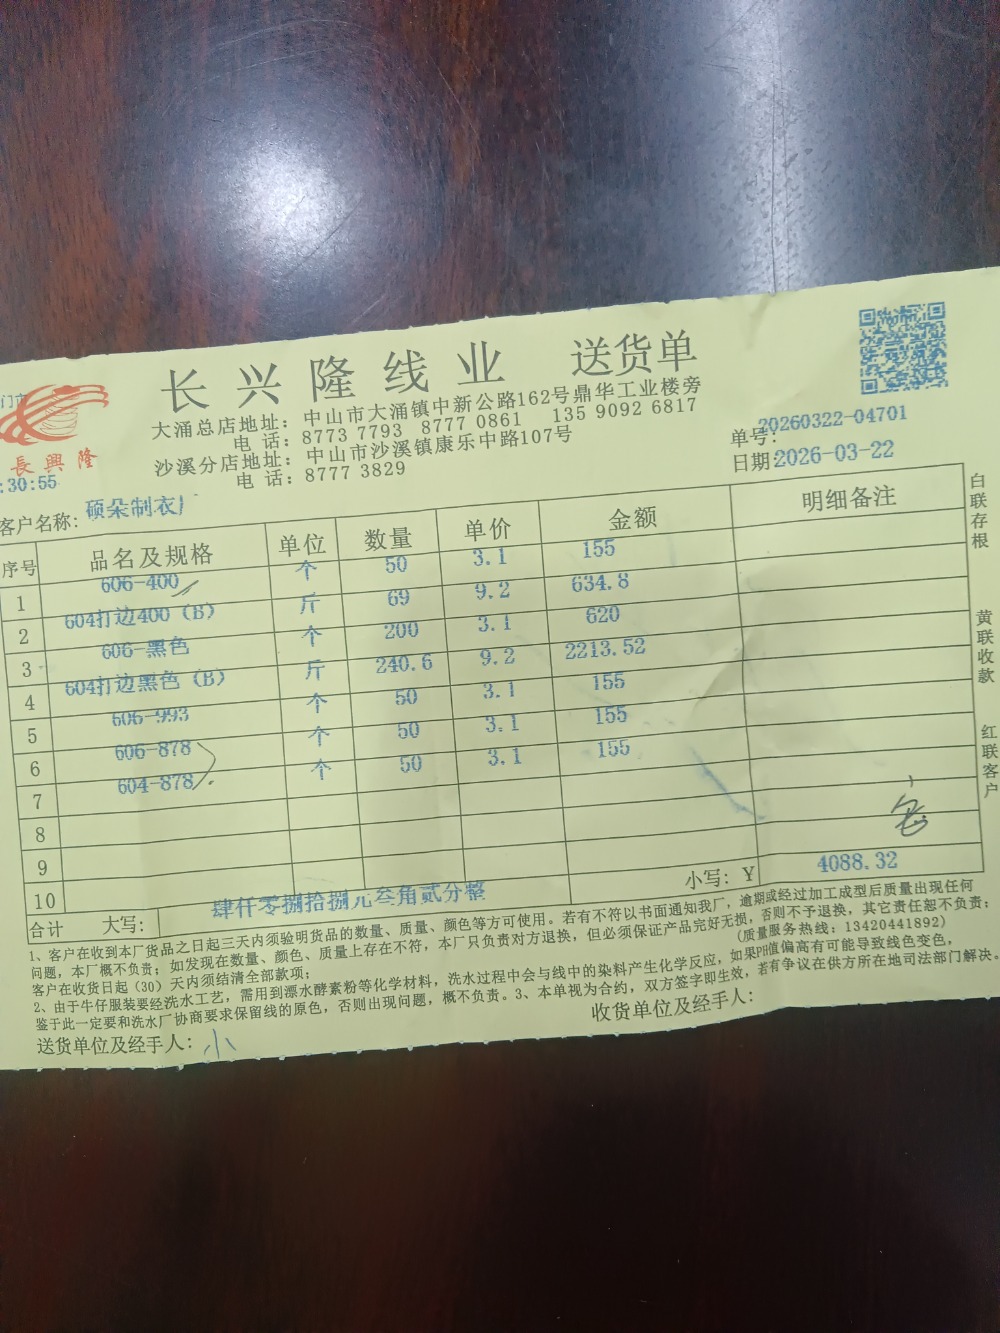 长兴隆线业 送货单
大涌总店地址：中山市大涌镇中新公路162号鼎华工业楼旁
电 话：8773 7793 8777 0861 135 9092 6817
沙溪分店地址：中山市沙溪镇康乐中路107号
电 话：8777 3829
長興隆
:30:55
单号：20260322-04701
日期：2026-03-22
客户名称：硕朵制衣厂
序号 品名及规格 单位 数量 单价 金额 明细备注
1 606-400 个 50 3.1 155
2 604打边400（B） 斤 69 9.2 634.8
3 606-黑色 个 200 3.1 620
4 604打边黑色（B） 斤 240.6 9.2 2213.52
5 606-993 个 50 3.1 155
6 606-878 个 50 3.1 155
7 604-878 个 50 3.1 155
8
9
10
合计 大写：肆仟零捌拾捌元叁角贰分整 小写：Y 4088.32
1、客户在收到本厂货品之日起三天内须验明货品的数量、质量、颜色等方可使用。若有不符以书面通知我厂，逾期或经过加工成型后质量出现任何
问题，本厂概不负责；如发现在数量、颜色、质量上存在不符，本厂只负责对方退换，但必须保证产品完好无损，否则不予退换，其它责任恕不负责；
客户在收货日起（30）天内须结清全部款项； （质量服务热线：13420441892）
2、由于牛仔服装要经洗水工艺，需用到漂水酵素粉等化学材料，洗水过程中会与线中的染料产生化学反应，如果PH值偏高有可能导致线色变色，
鉴于此一定要和洗水厂协商要求保留线的原色，否则出现问题，概不负责。3、本单视为合约，双方签字即生效，若有争议在供方所在地司法部门解决。
送货单位及经手人：小 收货单位及经手人：
白联存根
黄联收款
红联客户